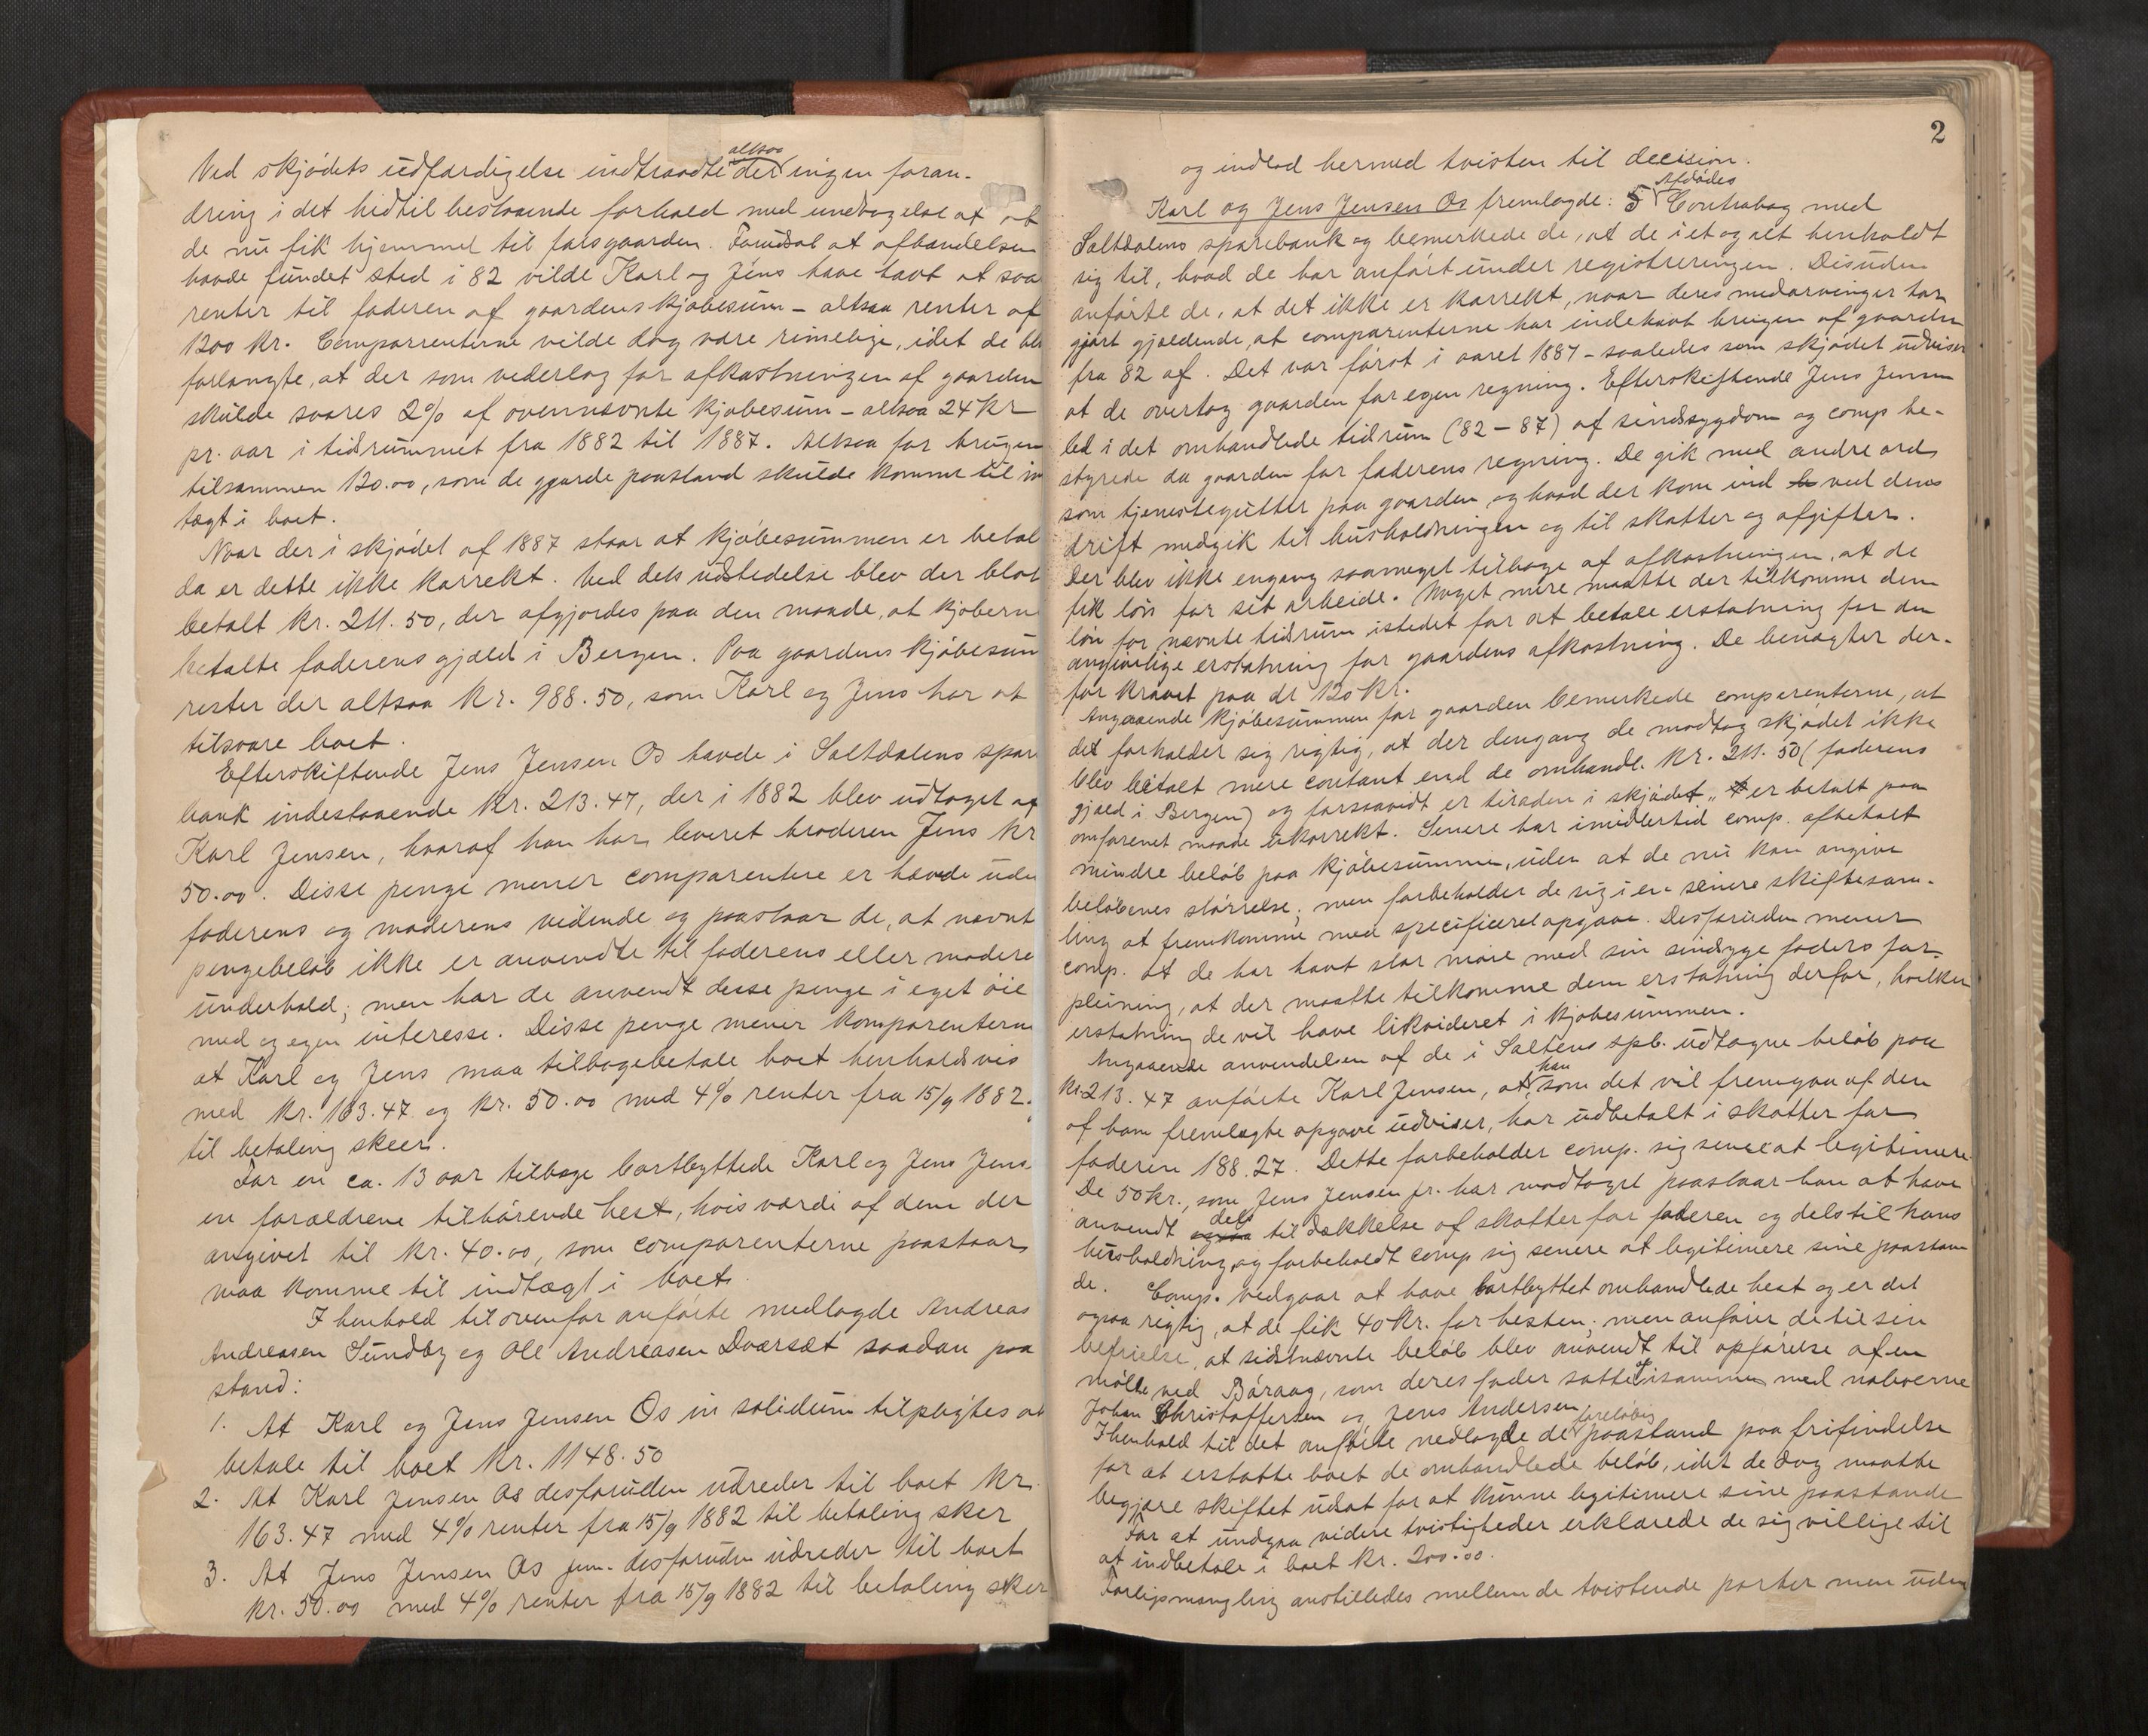 Ved skjødets udfærdigelse indtraadte der altsaa ingen foran-
dring i det hidtil bestaaende forhold med undtagelse af at
de nu fik hjemmel til farsgaarden. Forudsat at afhændelsen
havde fundet sted i 82 vilde Karl og Jens have havt at svare
renter til faderen af gaardens kjøbesum - altsaa renter af
1200 kr. Comparenterne vilde dog være rimelige, idet de blot
forlangte, at der som vederlag for afkastningen af gaarden
skulde svares 2% af ovennævnte kjøbesum - altsaa 24 kr
pr. aar i tidsrummet fra 1882 til 1887. Altsaa for brugen
tilsammen 120.00, som de gjorde paastand skulde komme til ind
tægt i boet.
Naar der i skjødet af 1887 staar at kjøbesummen er betal
da er dette ikke korrekt. Ved dets udstedelse blev der blot
betalt kr. 211.50, der afgjordes paa den maade, at kjøberne
betalte faderens gjæld i Bergen. Paa gaardens kjøbesum
rester der altsaa kr. 988.50, som Karl og Jens har at
tilsvare boet.
Efterskiftende Jens Jensen Os havde i Saltdalens spare
bank indestaaende kr. 213.47, der i 1882 blev udtaget af
Karl Jensen, hvoraf han har leveret broderen Jens kr
50.00. Disse penge mener comparentene er hævede uden
faderens og moderens vidende og paastaar de, at nævnte
pengebeløb ikke er anvendte til faderens eller moderens
underhold; men har de anvendt disse penge i eget øie
med og egen interesse. Disse penge mener komparenterne
at Karl og Jens maa tilbagebetale boet henholdsvis
med kr. 163.47 og kr. 50.00 med 4% renter fra 15/9 1882.
til betaling skeer.
For en ca. 13 aar tilbage bortbyttede Karl og Jens Jens
en forældrene tilhørende hest, hvis værdi af dem der
angivet til kr. 40.00, som comparenterne paastaar
maa komme til indtægt i boet.
I henhold til ovenfor anførte nedlagde Andreas
Andreasen Sundby og Ole Andreasen Dværsæt saadan paa
stand:
1. At Karl og Jens Jensen Os in solidum tilpligtes at
betale til boet kr. 1148.50
2. At Karl Jensen Os desforuden udreder til boet kr.
163.47 med 4% renter fra 15/9 1882 til betaling sker
3. At Jens Jensen Os jun. desforuden udreder til boet
kr. 50.00 med 4% renter fra 15/9 1882 til betaling sker
2
og indlod hermed tvisten til decision.
Karl og Jens Jensen Os fremlagde: 5 Afdødes Contrabog med
Saltdalens sparebank og bemerkede de, at de i et og alt henholdt
sig til, hvad de har anført under registreringen. Desuden
anførte de, at det ikke er korrekt, naar deres medarvinger har
gjort gjældende, at comparenterne har indehavt brugen af gaarden
fra 82 af. Det var først i aaret 1887 - saaledes som skjødet udviser
at de overtog gaarden for egen regning. Efterskiftende Jens Jensen
led i det omhandlede tidsrum (82-87) af sindssygdom og comp be-
styrede da gaarden for faderens regning. De gik med andre ord
som tjenestegutter paa gaarden og hvad der kom ind ved dens
drift medgik til husholdningen og til skatter og afgifter.
Der blev ikke engang saameget tilbage af afkastningen, at de
fik løn for sit arbeide. Noget mere maatte der tilkomme dem
løn for nævnte tidsrum istedet for at betale erstatning for den
angivelige erstatning for gaardens afkastning. De benægter der-
for kravet paa de 120 kr.
Angaaende kjøbesummen for gaarden bemerkede comparenterne, at
det forholder sig rigtig, at der dengang de modtog skjødet ikke
blev betalt mere contant end de omhandl. kr. 211.50 (faderens
gjæld i Bergen) og forsaavidt er tiraden i skjødet "er betalt paa
omforenet maade ukorrekt. Senere har imidlertid comp. afbetalt
mindre beløb paa kjøbesummen, uden at de nu kan angive
beløbenes størrelse; men forbeholder de sig i en senere skiftesam-
ling at fremkomme med specificeret opgave. Desforuden mener
comp. at de har havt stor møie med sin sindssyge faders for-
pleining, at der maatte tilkomme dem erstatning derfor, hvilken
erstatning de vil have likvideret i kjøbesummen.
Angaaende anvendelsen af de i Saltens spb. udtagne beløb paa
kr. 213.47 anførte Karl Jensen, at han som det vil fremgaa af den
af ham fremlagte opgave udviser, har udbetalt i skatter for
faderen 188.27. Dette forbeholder comp. sig senere at legitimere
De 50 kr., som Jens Jensen jr. har modtaget paastaar han at have
anvendt dels til dækkelse af skatter for faderen og dels til hans
husholdning, og forbeholdt comp sig senere at legitimere sine paastan
de. Comp. vedgaar at have bortbyttet omhandlede hest og er det
ogsaa rigtig, at de fik 40 kr. for hesten; men anfører de til sin
befrielse, at sidstnævnte beløb blev anvendt til opførelse af en
mølle ved Båraag, som deres fader satte op isammen med naboerne
Johan Christoffersen og Jens Andersen
I henhold til det anførte nedlagde de foreløbig paastand paa frifindelse
for at erstatte boet de omhandlede beløb, idet de dog maatte
begjære skiftet udsat for at kunne legitimere sine paastande
For at undgaa videre tvistigheder erklærede de sig villige til
at indbetale i boet kr. 200.00.
Forligsmægling anstilledes mellem de tvistende parter men uden